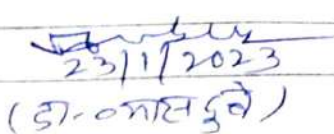 23/1/2023
(डा.व्यास दुबे)